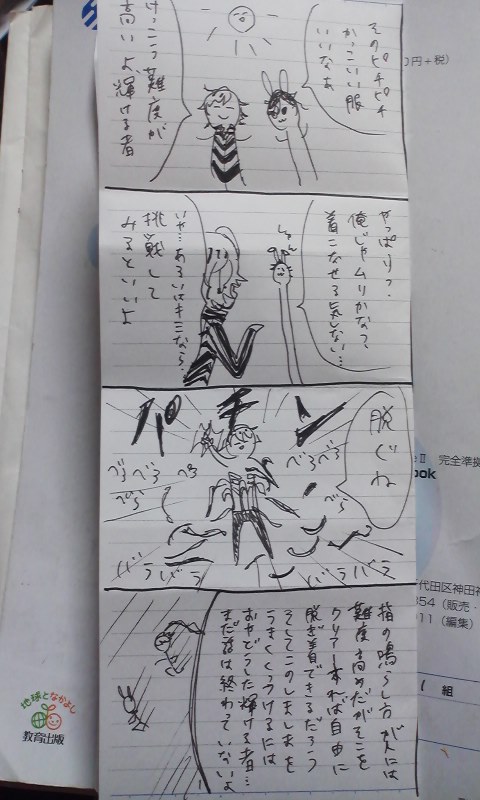 そのピチピチ
かっこいい服
いいなぁ
けっこう難度が
高いよ、輝ける者
やっぱりっ・
俺じゃムリかな？
着こなせる気しない…
しゅん
いや…あるいはキミなら…
挑戦して
みるといいよ
脱ぐね
パチン
べろべろ
べろ
べろべろ
べら
べら
バラバラ
バラバラ
指の鳴らし方が人には
難度高めだがそこを
クリアー
は自由に
脱ぎ着できるだろう
そしてこのしましまを
うまくくっつけるには
おやどうした輝ける者…
まだ話は終わっていないよ
円+税)
完全準拠
ook
代田区神田神
354（販売・
11（編集）
組
地球となかよし
教育出版